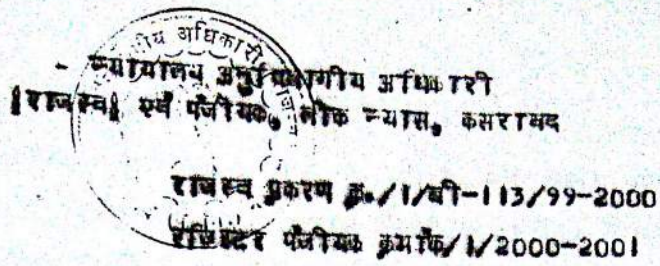 - न्यायालय अनुविभागीय अधिकारी
[राजस्व] एवं पंजीयक, लोक न्यास, कसरावद
राजस्व प्रकरण क्र./1/बी-113/99-2000
रजिस्टर पंजीयक क्रमांक/1/2000-2001
ीय अधिकारी